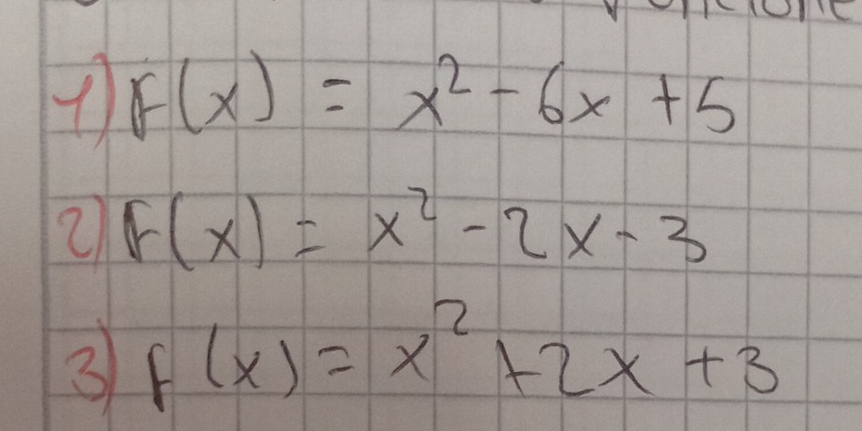 1) F(x) = x² - 6x + 5
2) F(x) = x² - 2x - 3
3) F(x) = x² + 2x + 3